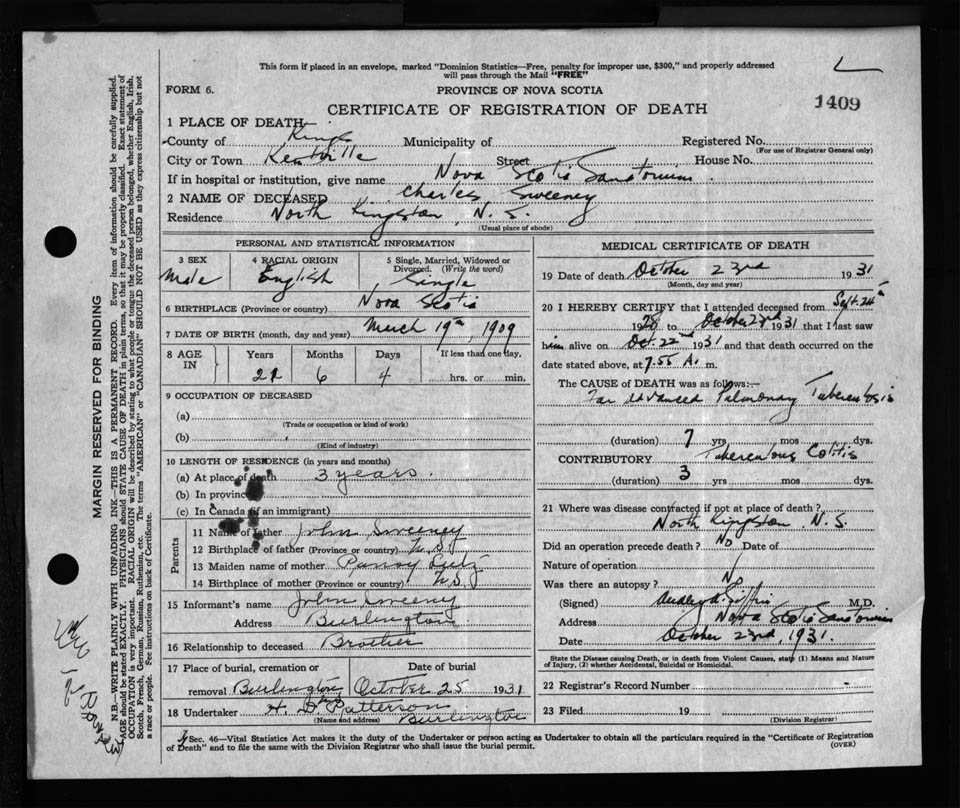 This form if placed in an envelope, marked "Dominion Statistics—Free, penalty for improper use, $300," and properly addressed
will pass through the Mail "FREE"
FORM 6.
PROVINCE OF NOVA SCOTIA
CERTIFICATE OF REGISTRATION OF DEATH
1409
1 PLACE OF DEATH
County of Kings Municipality of Registered No.
(For use of Registrar General only)
City or Town Kentville Street House No.
If in hospital or institution, give name Nova Scotia Sanatorium
2 NAME OF DECEASED Charles Sweeney
Residence North Kingston, N. S.
(Usual place of abode)
PERSONAL AND STATISTICAL INFORMATION
3 SEX 4 RACIAL ORIGIN 5 Single, Married, Widowed or
Divorced. (Write the word)
Male English Single
6 BIRTHPLACE (Province or country) Nova Scotia
7 DATE OF BIRTH (month, day and year) March 19th, 1909
8 AGE IN Years Months Days If less than one day,
6 4 hrs. or min.
9 OCCUPATION OF DECEASED
(a)
(Trade or occupation or kind of work)
(b)
(Kind of industry)
10 LENGTH OF RESIDENCE (in years and months)
(a) At place of death 3 years.
(b) In province
(c) In Canada (if an immigrant)
Parents
11 Name of father John Sweeney
12 Birthplace of father (Province or country) N.S.
13 Maiden name of mother Lutz
14 Birthplace of mother (Province or country) N.S.
15 Informant's name John Sweeny
Address Burlington
16 Relationship to deceased Brother
17 Place of burial, cremation or Date of burial
removal Burlington October 25 1931
18 Undertaker H. D. Patterson
(Name and address) Burlington
MEDICAL CERTIFICATE OF DEATH
19 Date of death October 23rd 1931
(Month, day and year)
20 I HEREBY CERTIFY that I attended deceased from Sept. 24th
19 to October 23rd 1931 that I last saw
him alive on Oct. 22 1931 and that death occurred on the
date stated above, at 7.55 A. m.
The CAUSE OF DEATH was as follows:—
Far advanced Pulmonary Tuberculosis
(duration) 7 yrs. mos. dys.
CONTRIBUTORY Tuberculous Colitis
(duration) 3 yrs. mos. dys.
21 Where was disease contracted if not at place of death?
North Kingston, N. S.
Did an operation precede death? No Date of
Nature of operation
Was there an autopsy? No
(Signed) M.D.
Address Nova Scotia Sanatorium
Date October 23rd, 1931.
State the Disease causing Death, or in death from Violent Causes, state (1) Means and Nature
of Injury, (2) whether Accidental, Suicidal or Homicidal.
22 Registrar's Record Number
23 Filed 19
(Division Registrar)
Sec. 46—Vital Statistics Act makes it the duty of the Undertaker or person acting as Undertaker to obtain all the particulars required in the "Certificate of Registration
of Death" and to file the same with the Division Registrar who shall issue the burial permit.
(OVER)
MARGIN RESERVED FOR BINDING
N.B.—WRITE PLAINLY WITH UNFADING INK—THIS IS A PERMANENT RECORD. Every item of information should be carefully supplied.
AGE should be stated EXACTLY. PHYSICIANS should STATE CAUSE OF DEATH in plain terms, so that it may be properly classified. Exact statement of
OCCUPATION is very important. RACIAL ORIGIN will be described by stating to what people or tongue the deceased person belonged, whether English, Irish,
Scotch, French, German, Russian, Ruthenian, etc. The terms "AMERICAN" or "CANADIAN" SHOULD NOT BE USED as they express citizenship but not
a race or people. Fee instructions on back of Certificate.